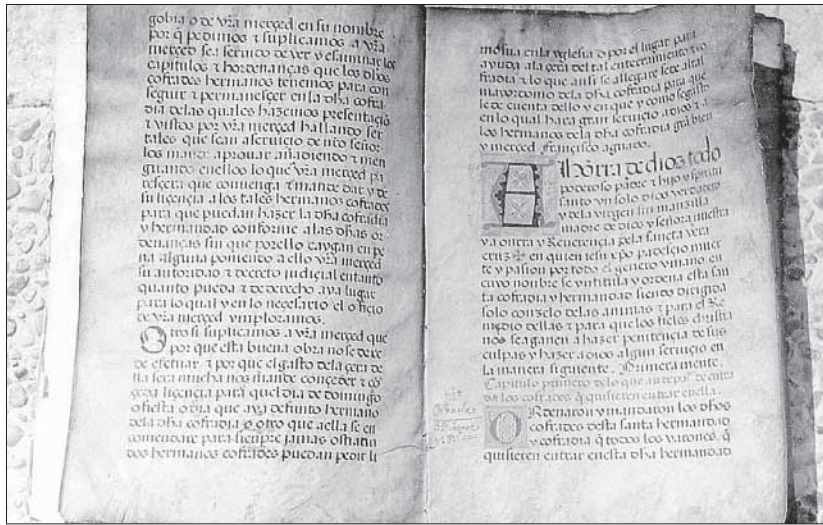 gobia o de vr̃a merçed en su nombre
por q̃ pedimos ⁊ suplicamos a vr̃a
merçed sea seruido de ver y esaminar los
capitulos ⁊ hordenanças que los dhos
cofrades hermanos tenemos para con
seguir ⁊ permanesçer en la dha cofra
dia delas quales hazemos presentaçiõ
⁊ vistos por vr̃a merçed hallando ser
tales que sean a seruicio de nr̃o señor
los mande aprouar añadiendo ⁊ men
guando en ellos lo que vr̃a merçed pa
resçera que conuenga ⁊ mande dar y de
su liçençia a los tales hermanos cofrades
para que puedan hazer la dha cofradia
y hermandad conforme a las dhas or
denanças sin que por ello caygan en pe
na alguna poniendo a ello vr̃a merçed
su autoridad ⁊ decreto judiçial en tanto
quanto pueda ⁊ de derecho aya lugar
para lo qual y en lo neçesario el offiçio
de vr̃a merçed ymploramos.
Otro si suplicamos a vr̃a merçed que
por que esta buena obra no se dexe
de efetuar ⁊ por que el gasto dela çera de
lla sera mucha nos mande conçeder ⁊ cõ
çeda liçençia para quel dia de domingo
o fiesta o dia que aya defunto hermano
dela dha cofradia o otro que a ella se en
comendare para siempre jamas
dos hermanos cofrades puedan pedir li
mosna enla yglesia o por el lugar para
ayuda ala çera del tal enterramiento ⁊ co
fradia ⁊ lo que ansi se allegare se de al tal
mayordomo dela dha cofradia para que
le de cuenta dello y en que y como se gasto
en lo qual hara gran seruicio a dios ⁊ a
los hermanos de la dha cofradia grã bien
y merçed. françisco aguado.
A honrra de dios todo
poderoso padre ⁊ hijo y spiritu
santo vn solo dios verdadero
y dela virgen sin manzilla
madre de dios y señora nuestra
y a onrra y Reuerençia dela sancta vera
cruz ✠ en quien iesu xp̃o padesçio muer
te y pasion por todo el genero vmano en
cuyo nombre se yntitula y ordena esta san
ta cofradia y hermandad siendo dirigida
solo conzelo delas animas ⁊ para el Re
medio dellas ⁊ para que los fieles christia
nos se aganen a hazer penitençia de sus
culpas y hazer a dios algun seruiçio en
la manera siguiente. Primera mente.
Capitulo primero delo que an de pa de entra
da los cofrades q̃ quisieren entrar enella.
ORdenaron y mandaron los dhos
cofrades desta santa hermandad
y cofradia q̃ todos los varones. q̃
quisieren entrar enesta dha hermandad